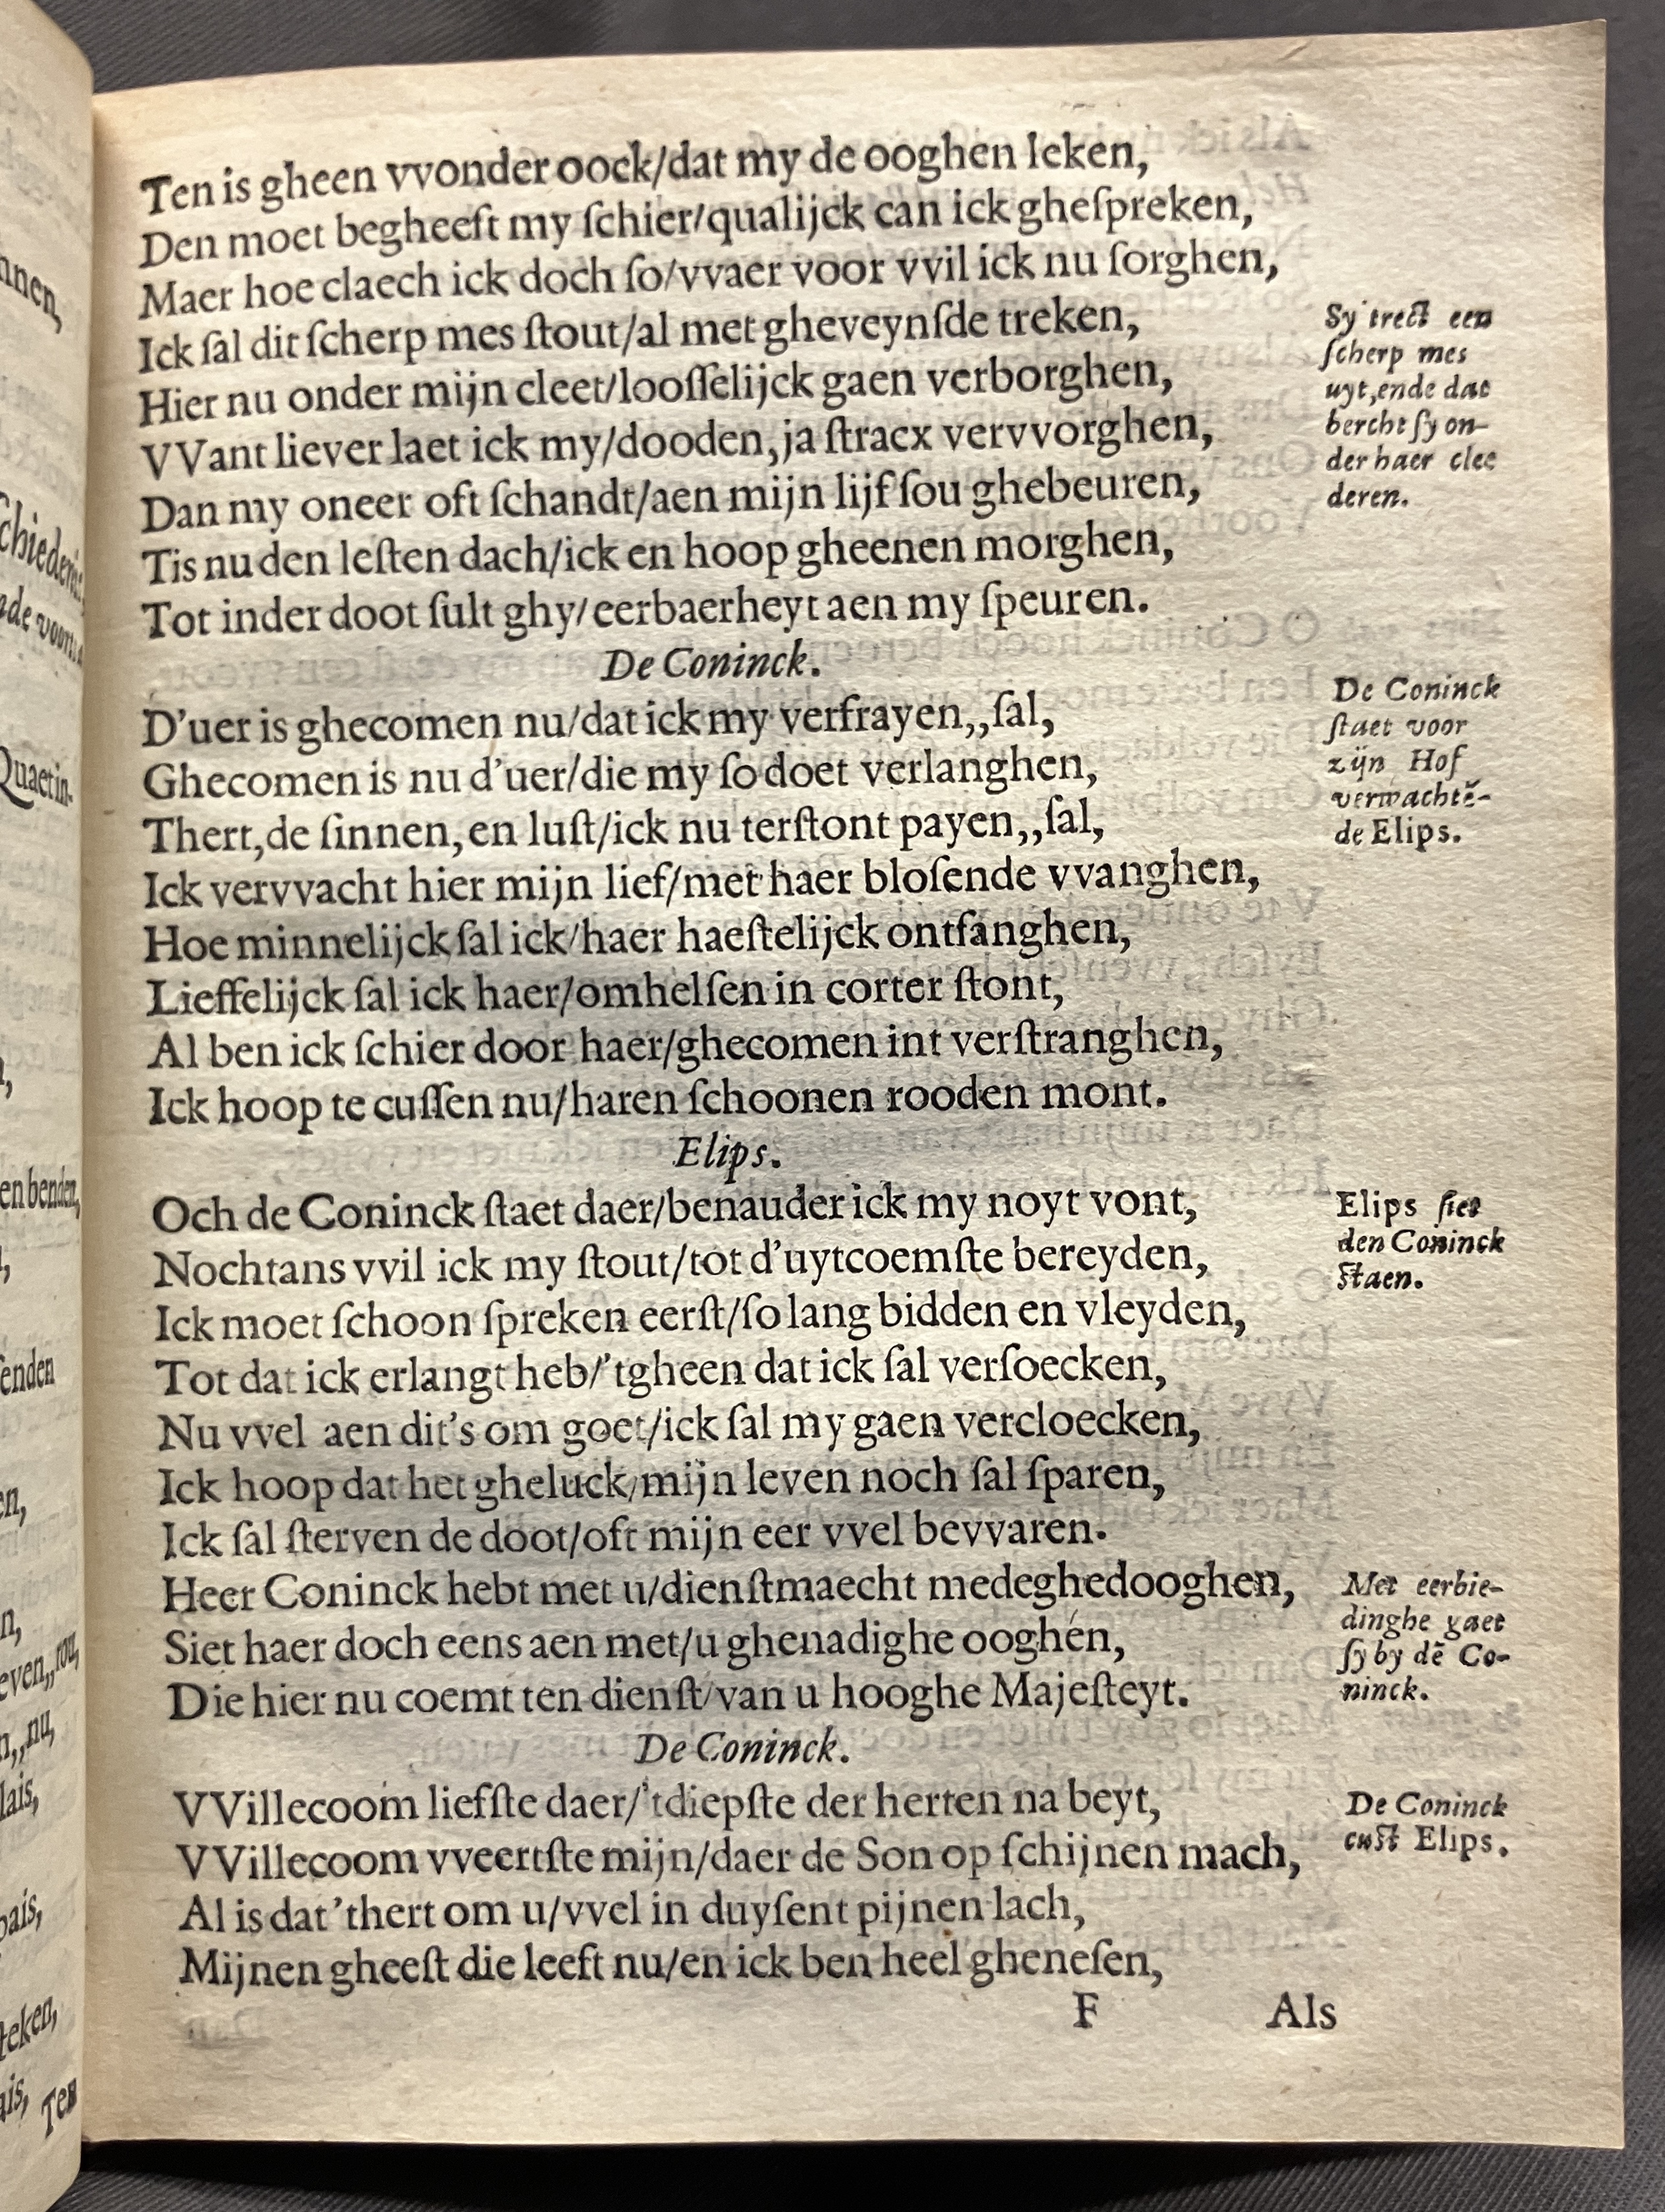 Ten is gheen vvonder oock/dat my de ooghen leken,
Den moet begheeft my ſchier/qualijck can ick gheſpreken,
Maer hoe claech ick doch ſo/vvaer voor vvil ick nu ſorghen,
Ick ſal dit ſcherp mes ſtout/al met gheveynſde treken,
Hier nu onder mijn cleet/looſſelijck gaen verborghen,
VVant liever laet ick my/dooden, ja ſtracx vervvorghen,
Dan my oneer oft ſchandt/aen mijn lijf ſou ghebeuren,
Tis nu den leſten dach/ick en hoop gheenen morghen,
Tot inder doot ſult ghy/eerbaerheyt aen my ſpeuren.
Sy trect een
ſcherp mes
uyt, ende dat
bercht ſy on-
der haer clee
deren.
De Coninck.
D'uer is ghecomen nu/dat ick my verfrayen,,ſal,
Ghecomen is nu d'uer/die my ſo doet verlanghen,
Thert, de ſinnen, en luſt/ick nu terſtont payen,,ſal,
Ick vervvacht hier mijn lief/met haer bloſende vvanghen,
Hoe minnelijck ſal ick/haer haeſtelijck ontfanghen,
Lieffelijck ſal ick haer/omhelſen in corter ſtont,
Al ben ick ſchier door haer/ghecomen int verſtranghen,
Ick hoop te cuſſen nu/haren ſchoonen rooden mont.
De Coninck
ſtaet voor
zijn Hof
verwachtē-
de Elips.
Elips.
Och de Coninck ſtaet daer/benauder ick my noyt vont,
Nochtans vvil ick my ſtout/tot d'uytcoemſte bereyden,
Ick moet ſchoon ſpreken eerſt/ſo lang bidden en vleyden,
Tot dat ick erlangt heb/'tgheen dat ick ſal verſoecken,
Nu vvel aen dit's om goet/ick ſal my gaen vercloecken,
Ick hoop dat het gheluck/mijn leven noch ſal ſparen,
Ick ſal ſterven de doot/oft mijn eer vvel bevvaren.
Heer Coninck hebt met u/dienſtmaecht medeghedooghen,
Siet haer doch eens aen met/u ghenadighe ooghen,
Die hier nu coemt ten dienſt/van u hooghe Majeſteyt.
Elips ſiet
den Coninck
ſtaen.
Met eerbie-
dinghe gaet
ſy by dē Co-
ninck.
De Coninck.
VVillecoom liefſte daer/'tdiepſte der herten na beyt,
VVillecoom vveertſte mijn/daer de Son op ſchijnen mach,
Al is dat 'thert om u/vvel in duyſent pijnen lach,
Mijnen gheeſt die leeft nu/en ick ben heel gheneſen,
De Coninck
cuſt Elips.
F Als